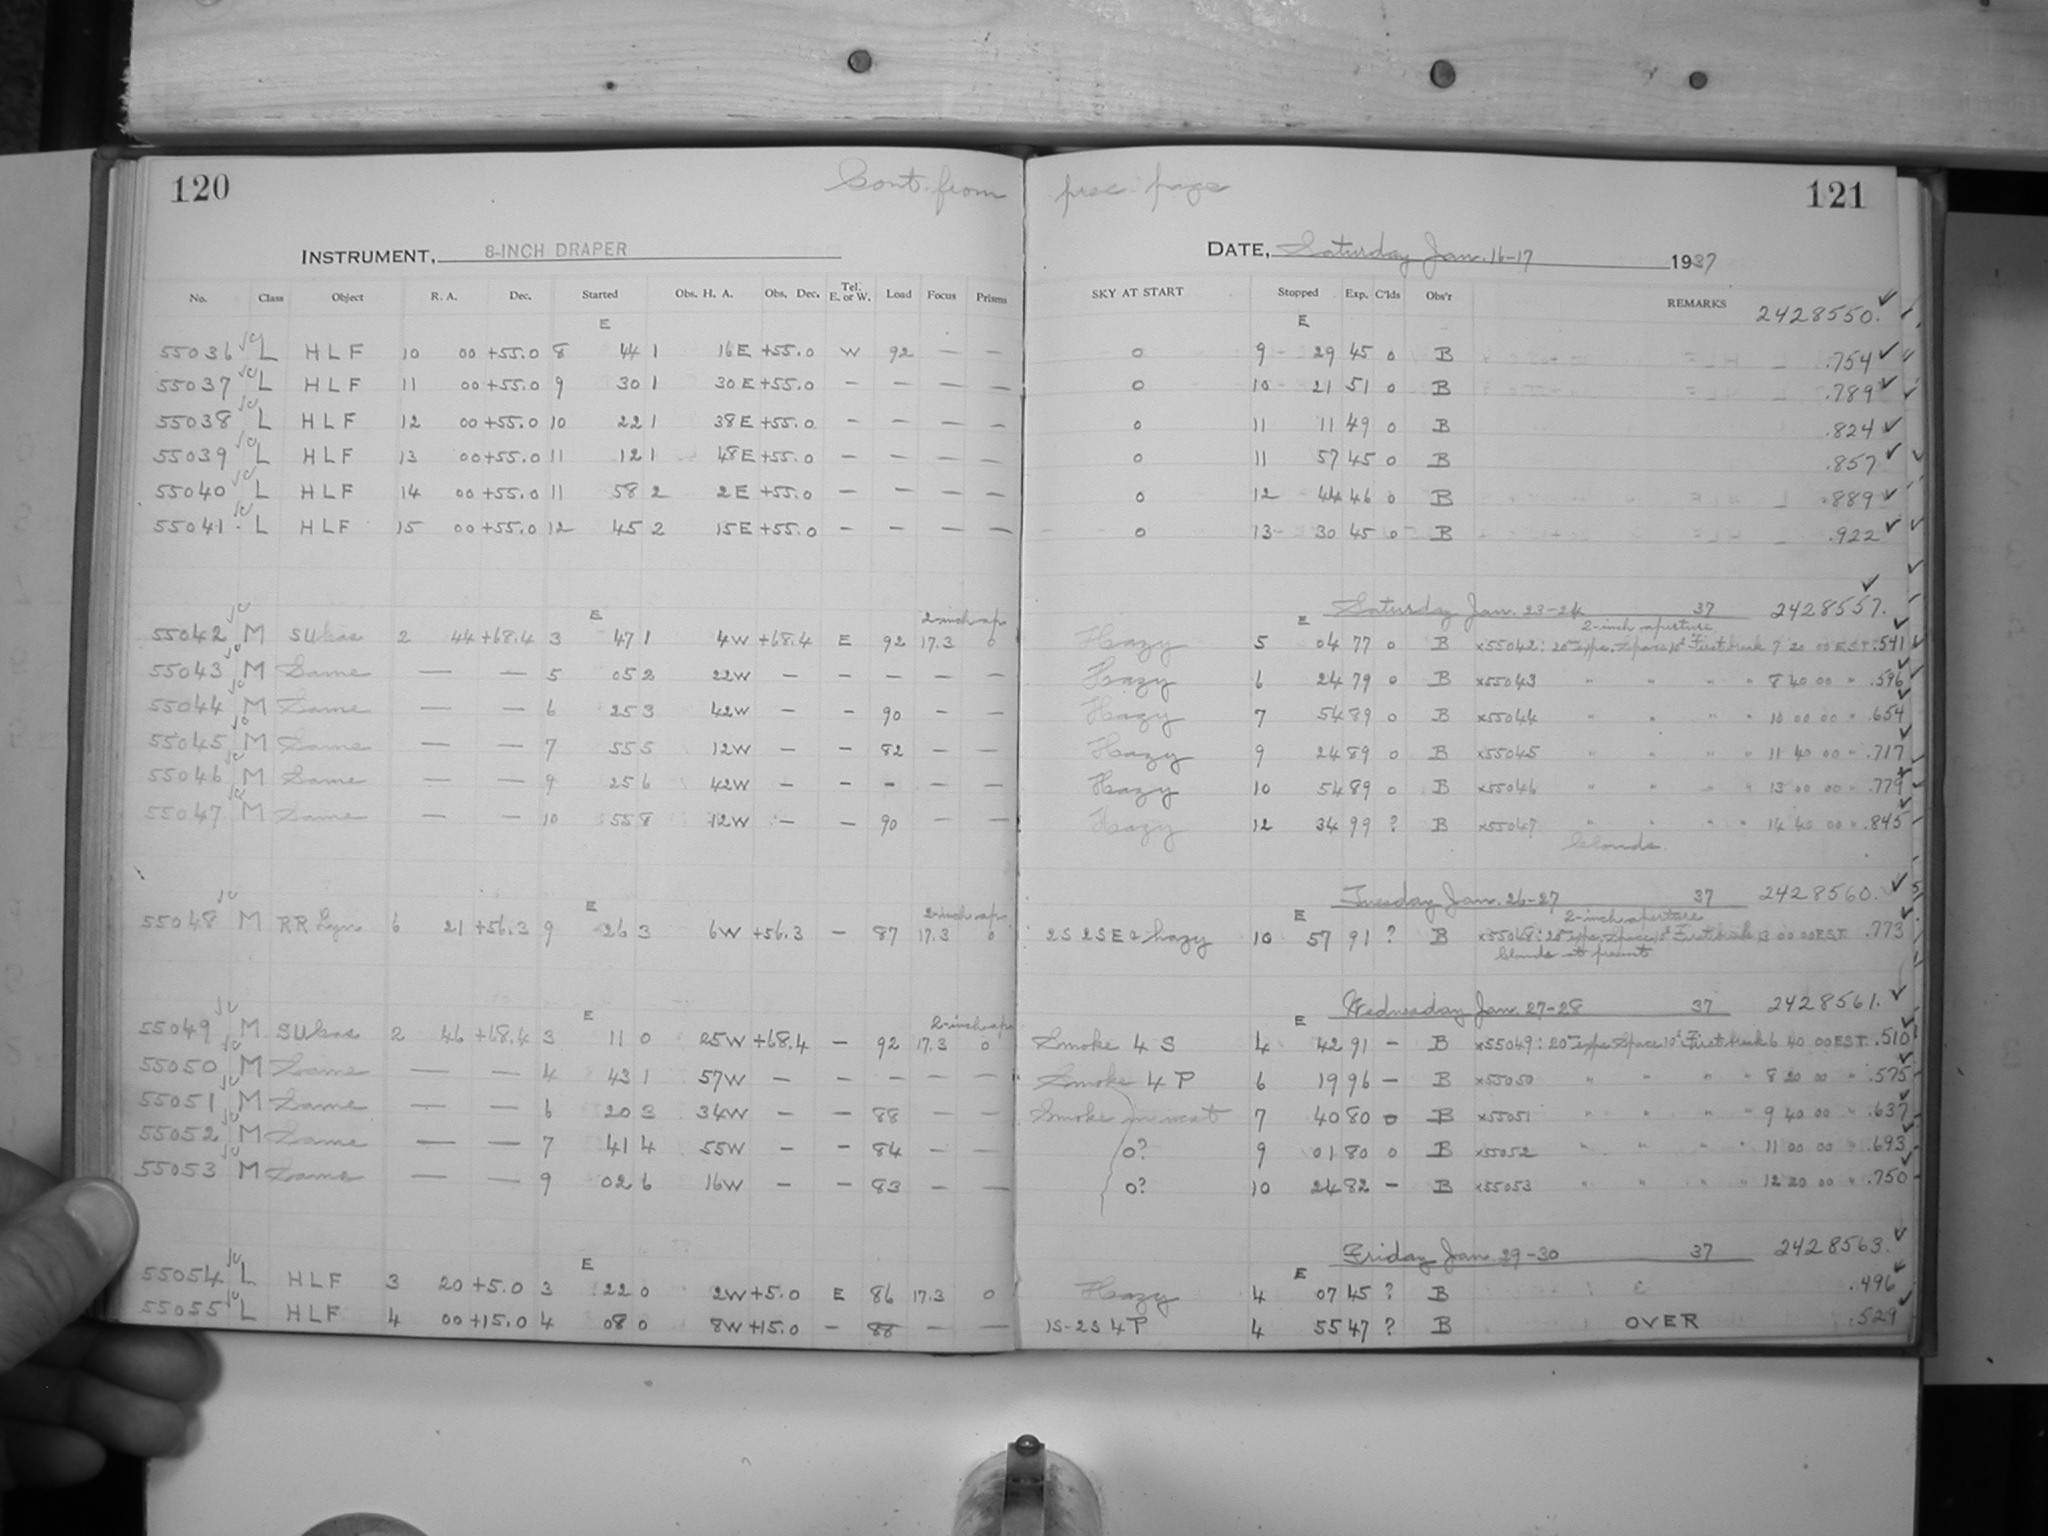 120 Cont. from prec. page 121
INSTRUMENT, 8-INCH DRAPER DATE, Saturday Jan. 16-17 1937
No. Class Object R. A. Dec. Started Obs. H. A. Obs. Dec. Tel. E. or W. Load Focus Prisms SKY AT START Stopped Exp. C'lds Obs'r REMARKS 2428550.
E E
55036 L HLF 10 00 +55.0 8 44 1 16E +55.0 W 92 — — 0 9 29 45 0 B .754
55037 L HLF 11 00 +55.0 9 30 1 30E +55.0 — — — — 0 10 21 51 0 B .789
55038 L HLF 12 00 +55.0 10 22 1 38E +55.0 — — — — 0 11 11 49 0 B .824
55039 L HLF 13 00 +55.0 11 12 1 48E +55.0 — — — — 0 11 57 45 0 B .857
55040 L HLF 14 00 +55.0 11 58 2 2E +55.0 — — — — 0 12 44 46 0 B .889
55041 L HLF 15 00 +55.0 12 45 2 15E +55.0 — — — — 0 13 30 45 0 B .922
E 2-inch ap. E Saturday Jan. 23-24 37 2428557.
2-inch aperture
55042 M SU Cas 2 44 +68.4 3 47 1 4W +68.4 E 92 17.3 0 Hazy 5 04 77 0 B x55042: 20m exps. Space 10s First break 7 20 00 EST .541
55043 M Same — — 5 05 2 22W — — — — — Hazy 6 24 79 0 B x55043 " " " " 8 40 00 " .596
55044 M Same — — 6 25 3 42W — — 90 — — Hazy 7 54 89 0 B x55044 " " " " 10 00 00 " .654
55045 M Same — — 7 55 5 12W — — 82 — — Hazy 9 24 89 0 B x55045 " " " " 11 40 00 " .717
55046 M Same — — 9 25 6 42W — — — — — Hazy 10 54 89 0 B x55046 " " " " 13 00 00 " .779
55047 M Same — — 10 55 8 12W — — 90 — — Hazy 12 34 99 ? B x55047 " " " " 14 40 00 " .845
Clouds
E 2-inch ap. E Tuesday Jan. 26-27 37 2428560.
2-inch aperture
55048 M RR Lyn 6 21 +56.3 9 26 3 6W +56.3 — 87 17.3 0 2S 2SE & hazy 10 57 91 ? B x55048: 20m exps. Space 10s First break 13 00 00 EST .773
Clouds at present
E 2-inch ap E Wednesday Jan. 27-28 37 2428561.
55049 M SU Cas 2 46 +68.4 3 11 0 25W +68.4 — 92 17.3 0 Smoke 4 S 4 42 91 — B x55049: 20m exps. Space 10s First break 6 40 00 EST .510
55050 M Same — — 4 43 1 57W — — — — — Smoke 4 P 6 19 96 — B x55050 " " " " 8 20 00 " .575
55051 M Same — — 6 20 3 34W — — 88 — — Smoke in west 7 40 80 0 B x55051 " " " " 9 40 00 " .637
55052 M Same — — 7 41 4 55W — — 84 — — 0? 9 01 80 0 B x55052 " " " " 11 00 00 " .693
55053 M Same — — 9 02 6 16W — — 83 — — 0? 10 24 82 — B x55053 " " " " 12 20 00 " .750
E E Friday Jan. 29-30 37 2428563.
55054 L HLF 3 20 +5.0 3 22 0 2W +5.0 E 86 17.3 0 Hazy 4 07 45 ? B .496
55055 L HLF 4 00 +15.0 4 08 0 8W +15.0 — 88 — — 1S-2S 4P 4 55 47 ? B OVER .529